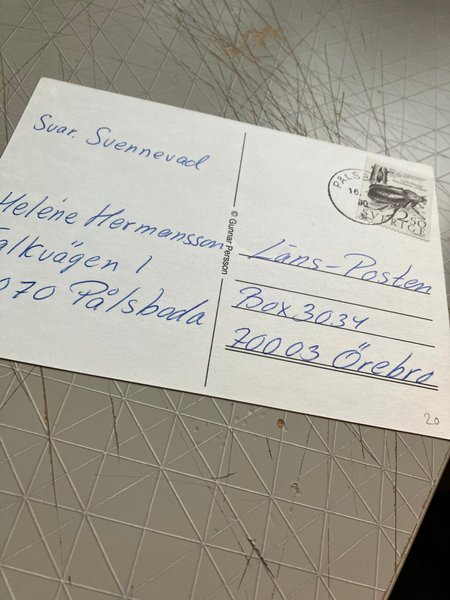 Svar. Svennevad
Helene Hermansson
alkvägen 1
070 Pålsboda
© Gunnar Persson
PÅLSB
16.
SVERIGE
2.50
Läns-Posten
Box 3034
70003 Örebro
20